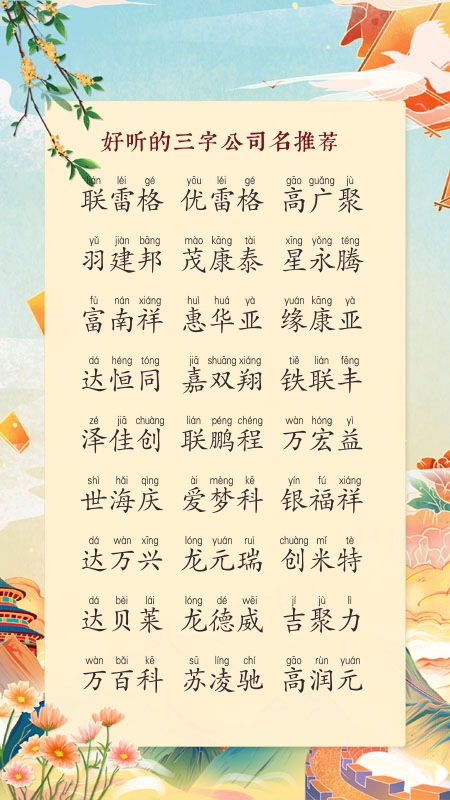 好听的三字公司名推荐
lián léi gé yōu léi gé gāo guǎng jù
联雷格 优雷格 高广聚
yǔ jiàn bāng mào kāng tài xīng yǒng téng
羽建邦 茂康泰 星永腾
fù nán xiáng huì huá yà yuán kāng yà
富南祥 惠华亚 缘康亚
dá héng tóng jiā shuāng xiáng tiě lián fēng
达恒同 嘉双翔 铁联丰
zé jiā chuàng lián péng chéng wàn hóng yì
泽佳创 联鹏程 万宏益
shì hǎi qìng ài mèng kē yín fú xiáng
世海庆 爱梦科 银福祥
dá wàn xīng lóng yuán ruì chuàng mǐ tè
达万兴 龙元瑞 创米特
dá bèi lái lóng dé wēi jí jù lì
达贝莱 龙德威 吉聚力
wàn bǎi kē sū líng chí gāo rùn yuán
万百科 苏凌驰 高润元